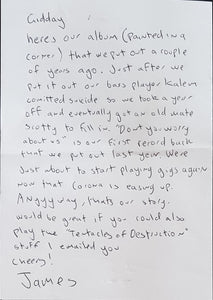 Gidday
heres our album (painted in a
corner) that we put out a couple
of years ago. Just after we
put it out our bass player Kalem
comitted suicide so we took a year
off and eventually got an old mate
Scotty to fill in. "Don't you worry
about us" is our first record back
that we put out last year. Were
Just about to start playing gigs again
now that Corona is easing up.
Angyyway, thats our story.
would be great if you could also
play the "Tentacles of Destruction"
stuff I emailed you
cheers!
James